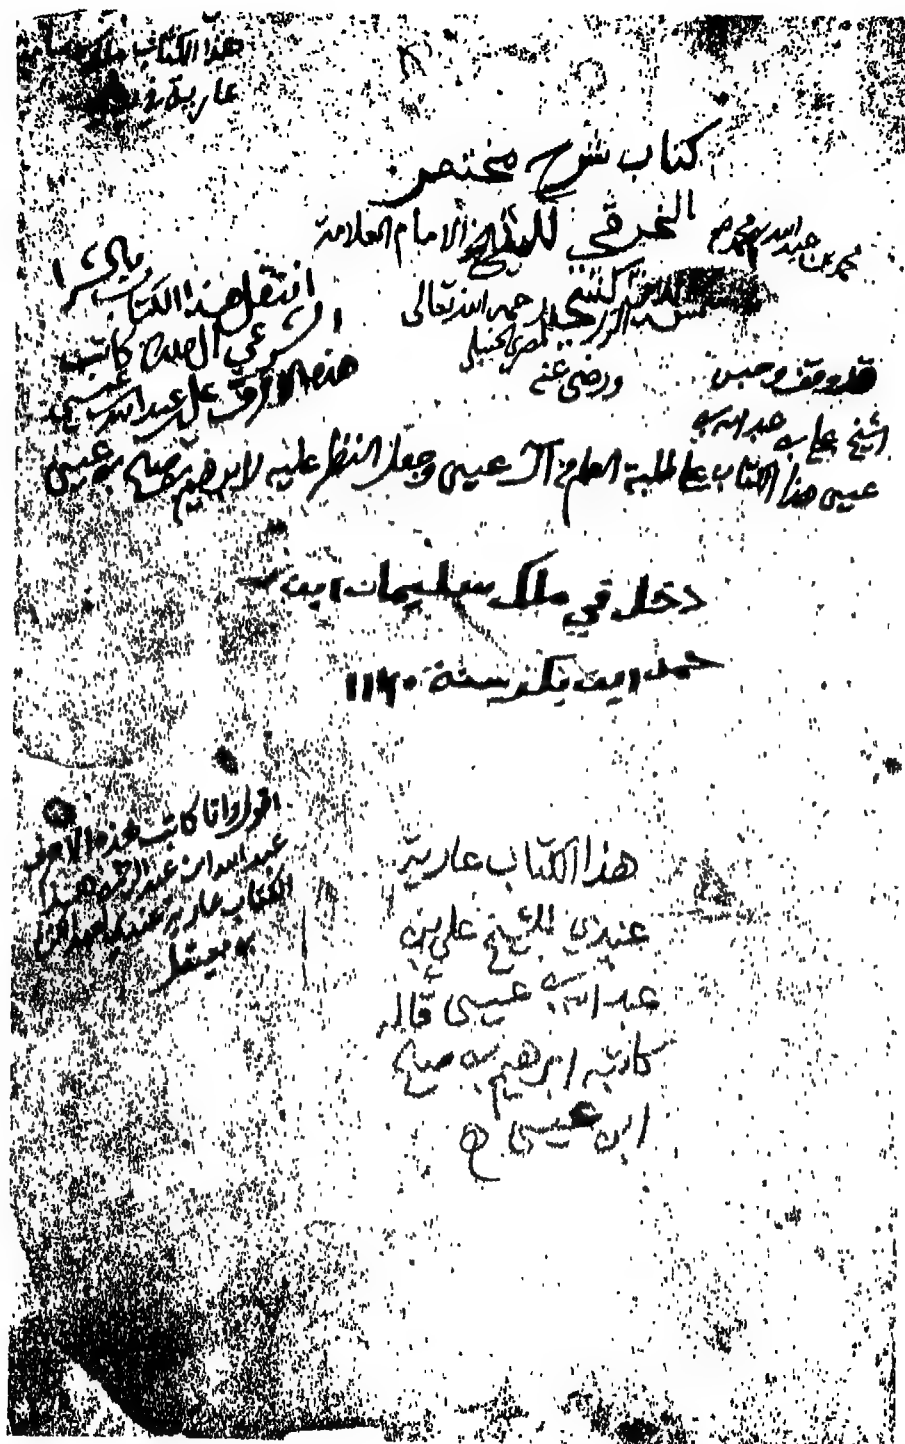 هذا الكتاب
عارية
كتاب شرح مختصر
الخرقي للشيخ الامام العلامة
محمد بن عبد الله بن محمد
شمس الدين الزركشي
رحمه الله تعالى
المصري الحنبلي
ورضي عنه
انتقل هذا الكتاب بالشرا
الشرعي الى ملك كاتب
هذه الاحرف علي بن عبد الله بن عيسى
قد وقف وحبس
الشيخ علي بن عبد الله بن
عيسى هذا الكتاب على طلبة العلم من آل عيسى وجعل النظر عليه لابرهيم بن صالح بن عيسى
دخل في ملك سليمان ابن
حمد ابن
سنة
اقول وانا كاتب هذه الاحرف
عبد الله ابن عبد الرحمن هذا
الكتاب عارية عندي
هذا الكتاب عارية
عندي للشيخ علي بن
عبد الله بن عيسى قاله
كاتبه ابرهيم بن صالح
ابن عيسى